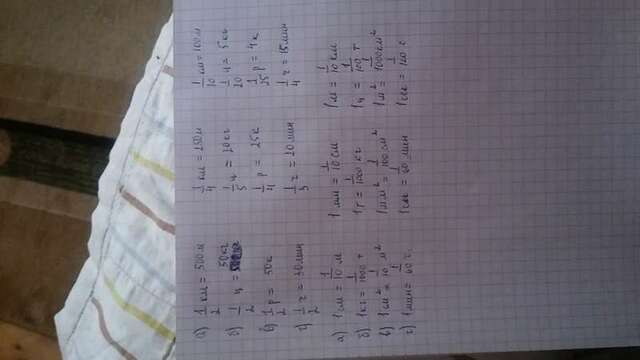 а) 1/2 км = 500м 1/4 км = 250м 1/10 км = 100м
б) 1/2 ц = 50кг 1/5 ц = 20кг 1/20 ц = 5кг
в) 1/2 р = 50к 1/4 р = 25к 1/25 р = 4к
г) 1/2 ч = 30мин 1/3 ч = 20мин 1/4 ч = 15мин
а) 1см = 1/10 м 1мм = 1/10 см 1м = 1/10 км
б) 1кг = 1/1000 т 1г = 1/1000 кг 1ц = 1/100 т
в) 1см² = 1/10 м² 1мм² = 1/100 см² 1м² = 1/1000 км²
г) 1мин = 1/60 ч. 1сек = 1/60 мин 1сек = 1/160 с